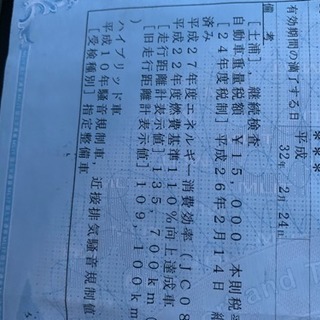 有効期間の満了する日
平成
32年 2月24日
備考
[土浦] 継続検査
自動車重量税額 ¥15,000 本則税率
[24年度税制] 平成26年2月14日
済み
平成27年度エネルギー消費効率(JC08
平成22年度燃費基準110%向上達成車
[走行距離計表示値] 135,700km(
[旧走行距離計表示値] 109,100km(
ハイブリッド車
平成10年騒音規制車,近接排気騒音規制値
[受検種別] 指定整備車